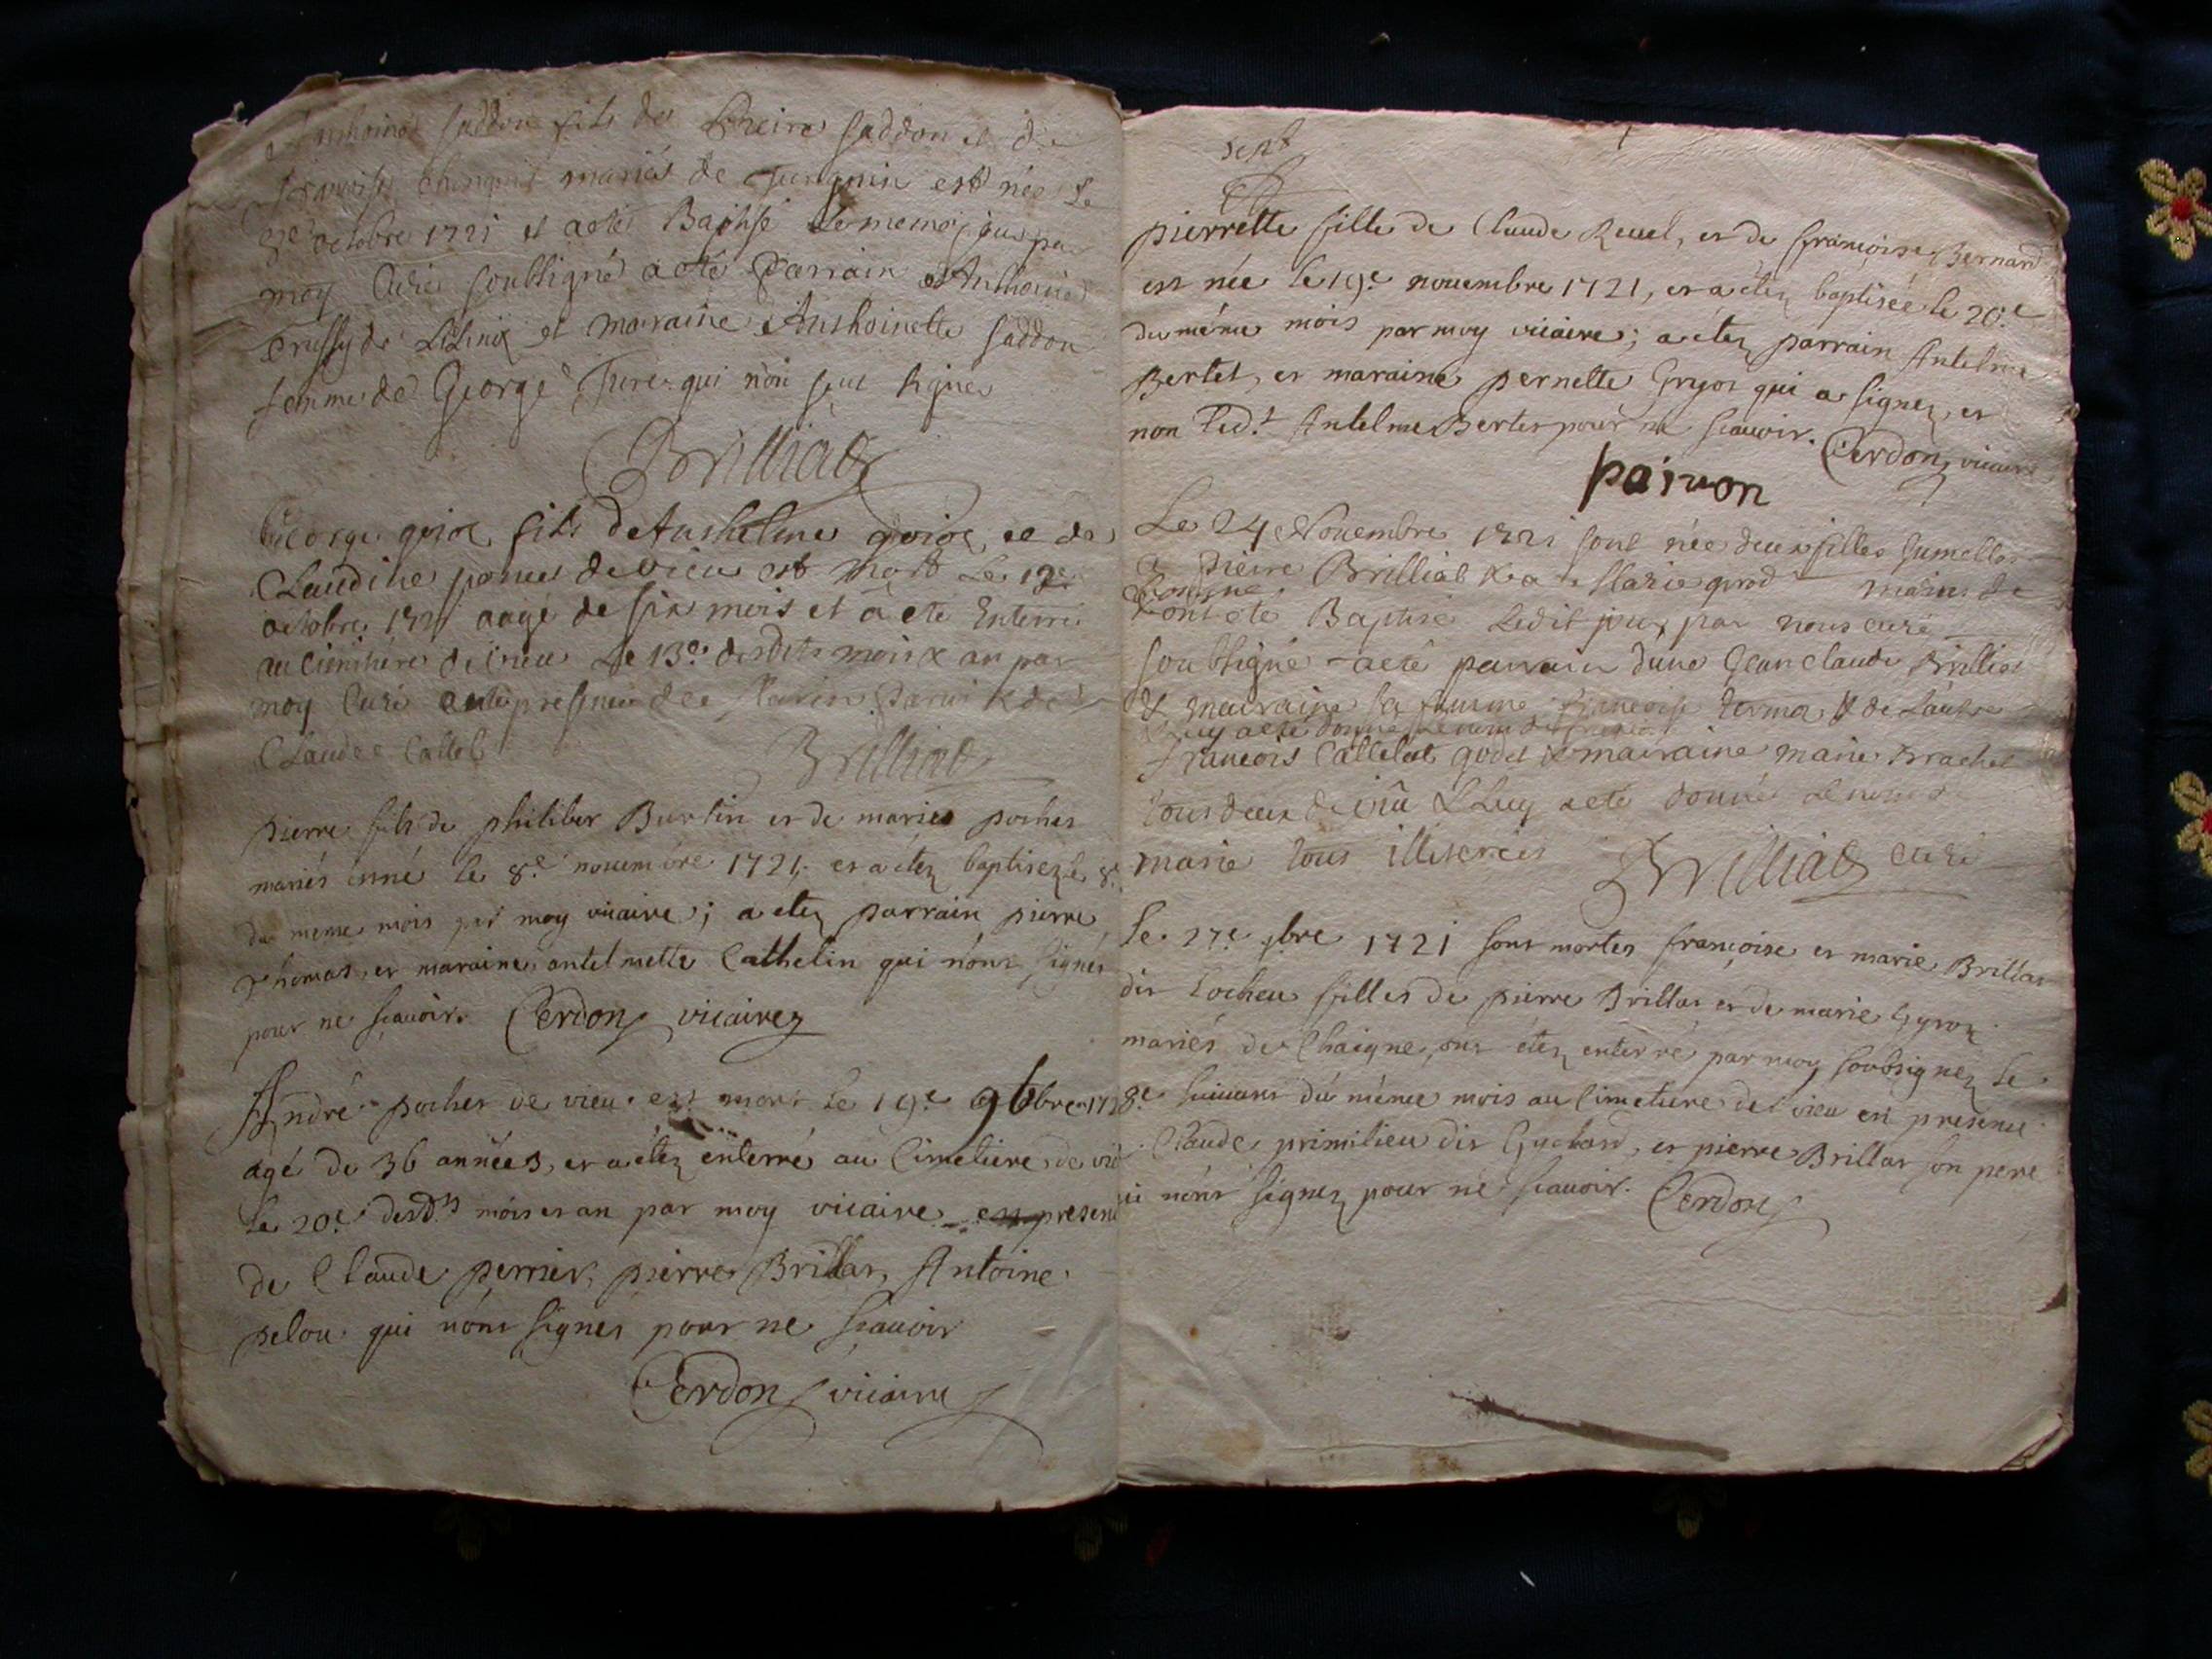 Anthoine saddon fils de Pierre saddon et de
mariés de est née Le
octobre 1721 et a eté Baptisé Le meme jour par
moy Curé soubsigné a eté Parrain Anthoine
et maraine Anthoinette saddon
femme de George qui n'on sçut signer
Brilliat
George goiot fils de Anthelme goiot et de
Claudine de vieu est mort Le 12e
octobre 1721 aagé de six mois et a eté Enterré
au cimitiere de vieu Le 13e desdits mois & an par
moy Curé en presence de & de
Claude Callet
Brilliat
pierre fils de philiber Burtin et de marie pochet
mariés est né le 8e novembre 1721, et a étez baptisez le 8e
du meme mois par moy vicaire; a etez parrain pierre
Thomas, et maraine antelmette Cathelin qui n'ont signés
pour ne sçavoir. Cerdon vicaire
André pochet de vieu est mort le 19e 9bre 172
agé de 36 années, et a étez enterré au Cimetiere de vie
le 20e desd.ts mois et an par moy vicaire en presen
de Claude perrier, pierre Brillat, Antoine
pelou qui n'ont signés pour ne sçavoir
Cerdon vicaire
sept
pierrette fille de Claude Revel, et de françoise Bernard
est née le 19e novembre 1721, et a étez baptisée le 20e
du méme mois par moy vicaire; a étez parrain Antelme
Bertet, et maraine pernette Gryot qui a signez, et
non led.t Antelme Bertet pour ne sçavoir. Cerdon vicaire
paivon
Le 24e Novembre 1721 sont née deux filles Jumelles
a pierre Brilliat & a Marie mariés de
& ont eté Baptisé Ledit jour par nous curé
soubsigné a eté parrain d'une Jean Claude Brilliat
& mairaine sa femme françoise & de L'autre
Luy a eté donné Le nom de
francois Callelut & mairaine marie Brachet
tous deux de & Luy a eté donné Le nom de
marie tous illiterés Brilliat curé
Le 27e 9bre 1721 sont mortes françoise et marie Brillat
dit Locheu filles de pierre Brillat et de marie Gyron
mariés de Chaigne, ont étez enterré par moy soubsignez le
8e suivant du méme mois au Cimetiere de vieu en presence
Claude primilieu dit Guchard, et pierre Brillat son pere
ui n'ont signez pour ne sçavoir. Cerdon